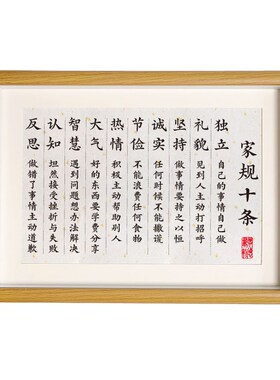 家规十条
独立 自己的事情自己做
礼貌 见到人主动打招呼
坚持 做事情要持之以恒
诚实 任何时候不能撒谎
节俭 不能浪费任何食物
热情 积极主动帮助别人
大气 好的东西要学费分享
智慧 遇到问题想办法解决
认知 坦然接受挫折与失败
反思 做错了事情主动道歉